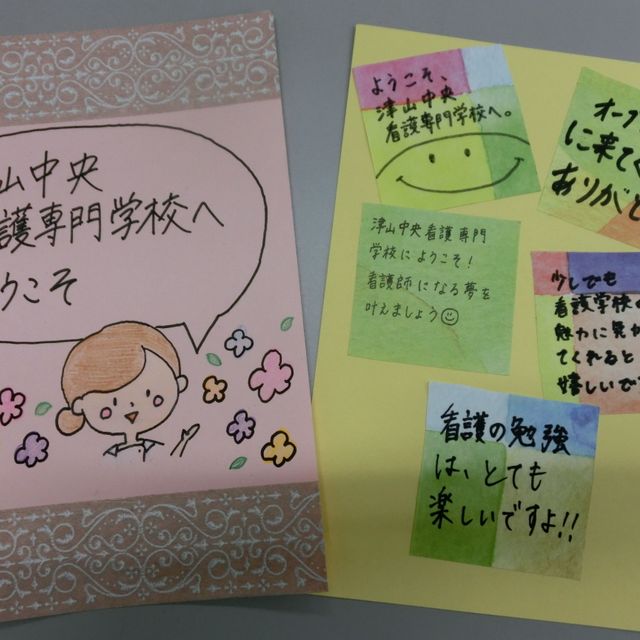 山中央
護専門学校へ
うこそ
ようこそ、
津山中央
看護専門学校へ。
オープ
に来てく
ありがと
津山中央看護専門
学校にようこそ!
看護師になる夢を
叶えましょう☺
少しでも
看護学校の
魅力に気
てくれると
嬉しいで
看護の勉強
は、とても
楽しいですよ!!